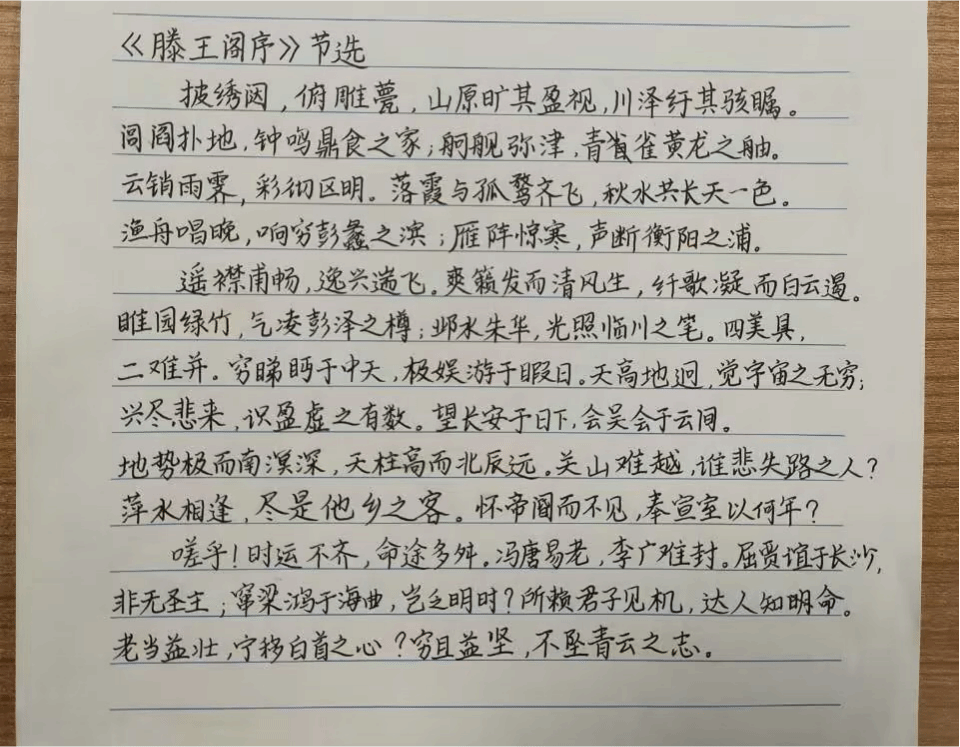 《滕王阁序》节选
披绣闼，俯雕甍，山原旷其盈视，川泽纡其骇瞩。
闾阎扑地，钟鸣鼎食之家；舸舰弥津，青雀黄龙之舳。
云销雨霁，彩彻区明。落霞与孤鹜齐飞，秋水共长天一色。
渔舟唱晚，响穷彭蠡之滨；雁阵惊寒，声断衡阳之浦。
遥襟甫畅，逸兴遄飞。爽籁发而清风生，纤歌凝而白云遏。
睢园绿竹，气凌彭泽之樽；邺水朱华，光照临川之笔。四美具，
二难并。穷睇眄于中天，极娱游于暇日。天高地迥，觉宇宙之无穷；
兴尽悲来，识盈虚之有数。望长安于日下，会吴会于云间。
地势极而南溟深，天柱高而北辰远。关山难越，谁悲失路之人？
萍水相逢，尽是他乡之客。怀帝阍而不见，奉宣室以何年？
嗟乎！时运不齐，命途多舛。冯唐易老，李广难封。屈贾谊于长沙，
非无圣主；窜梁鸿于海曲，岂乏明时？所赖君子见机，达人知明命。
老当益壮，宁移白首之心？穷且益坚，不坠青云之志。